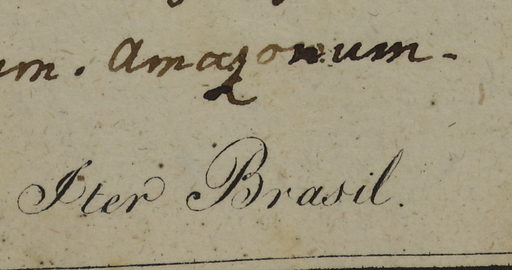 um. Amazonum.
Iter Brasil.